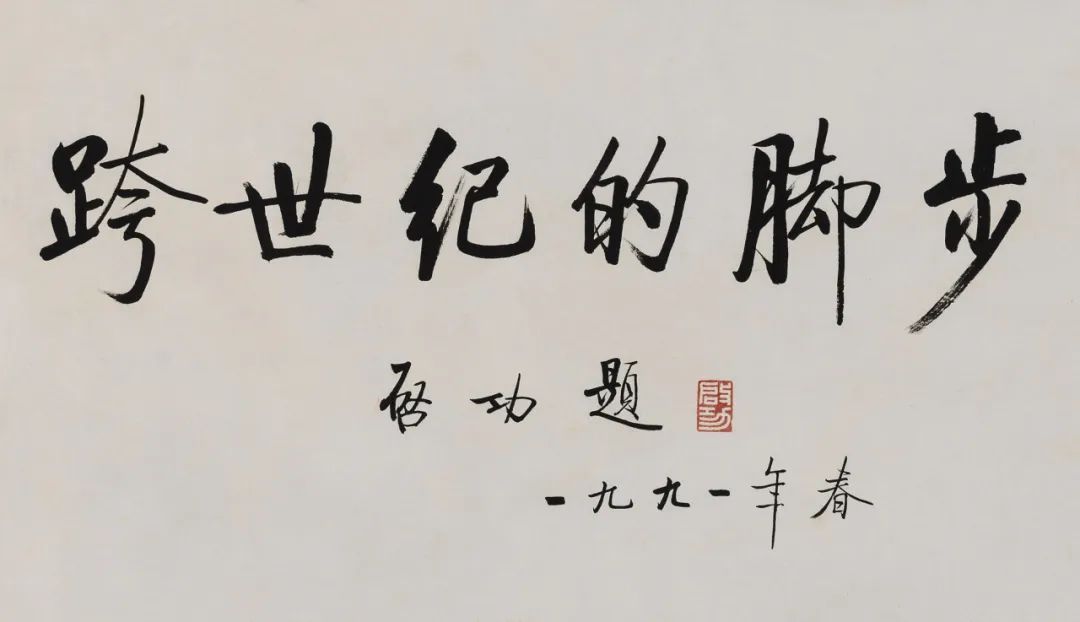 跨世纪的脚步
啓功题
啓功
一九九一年春